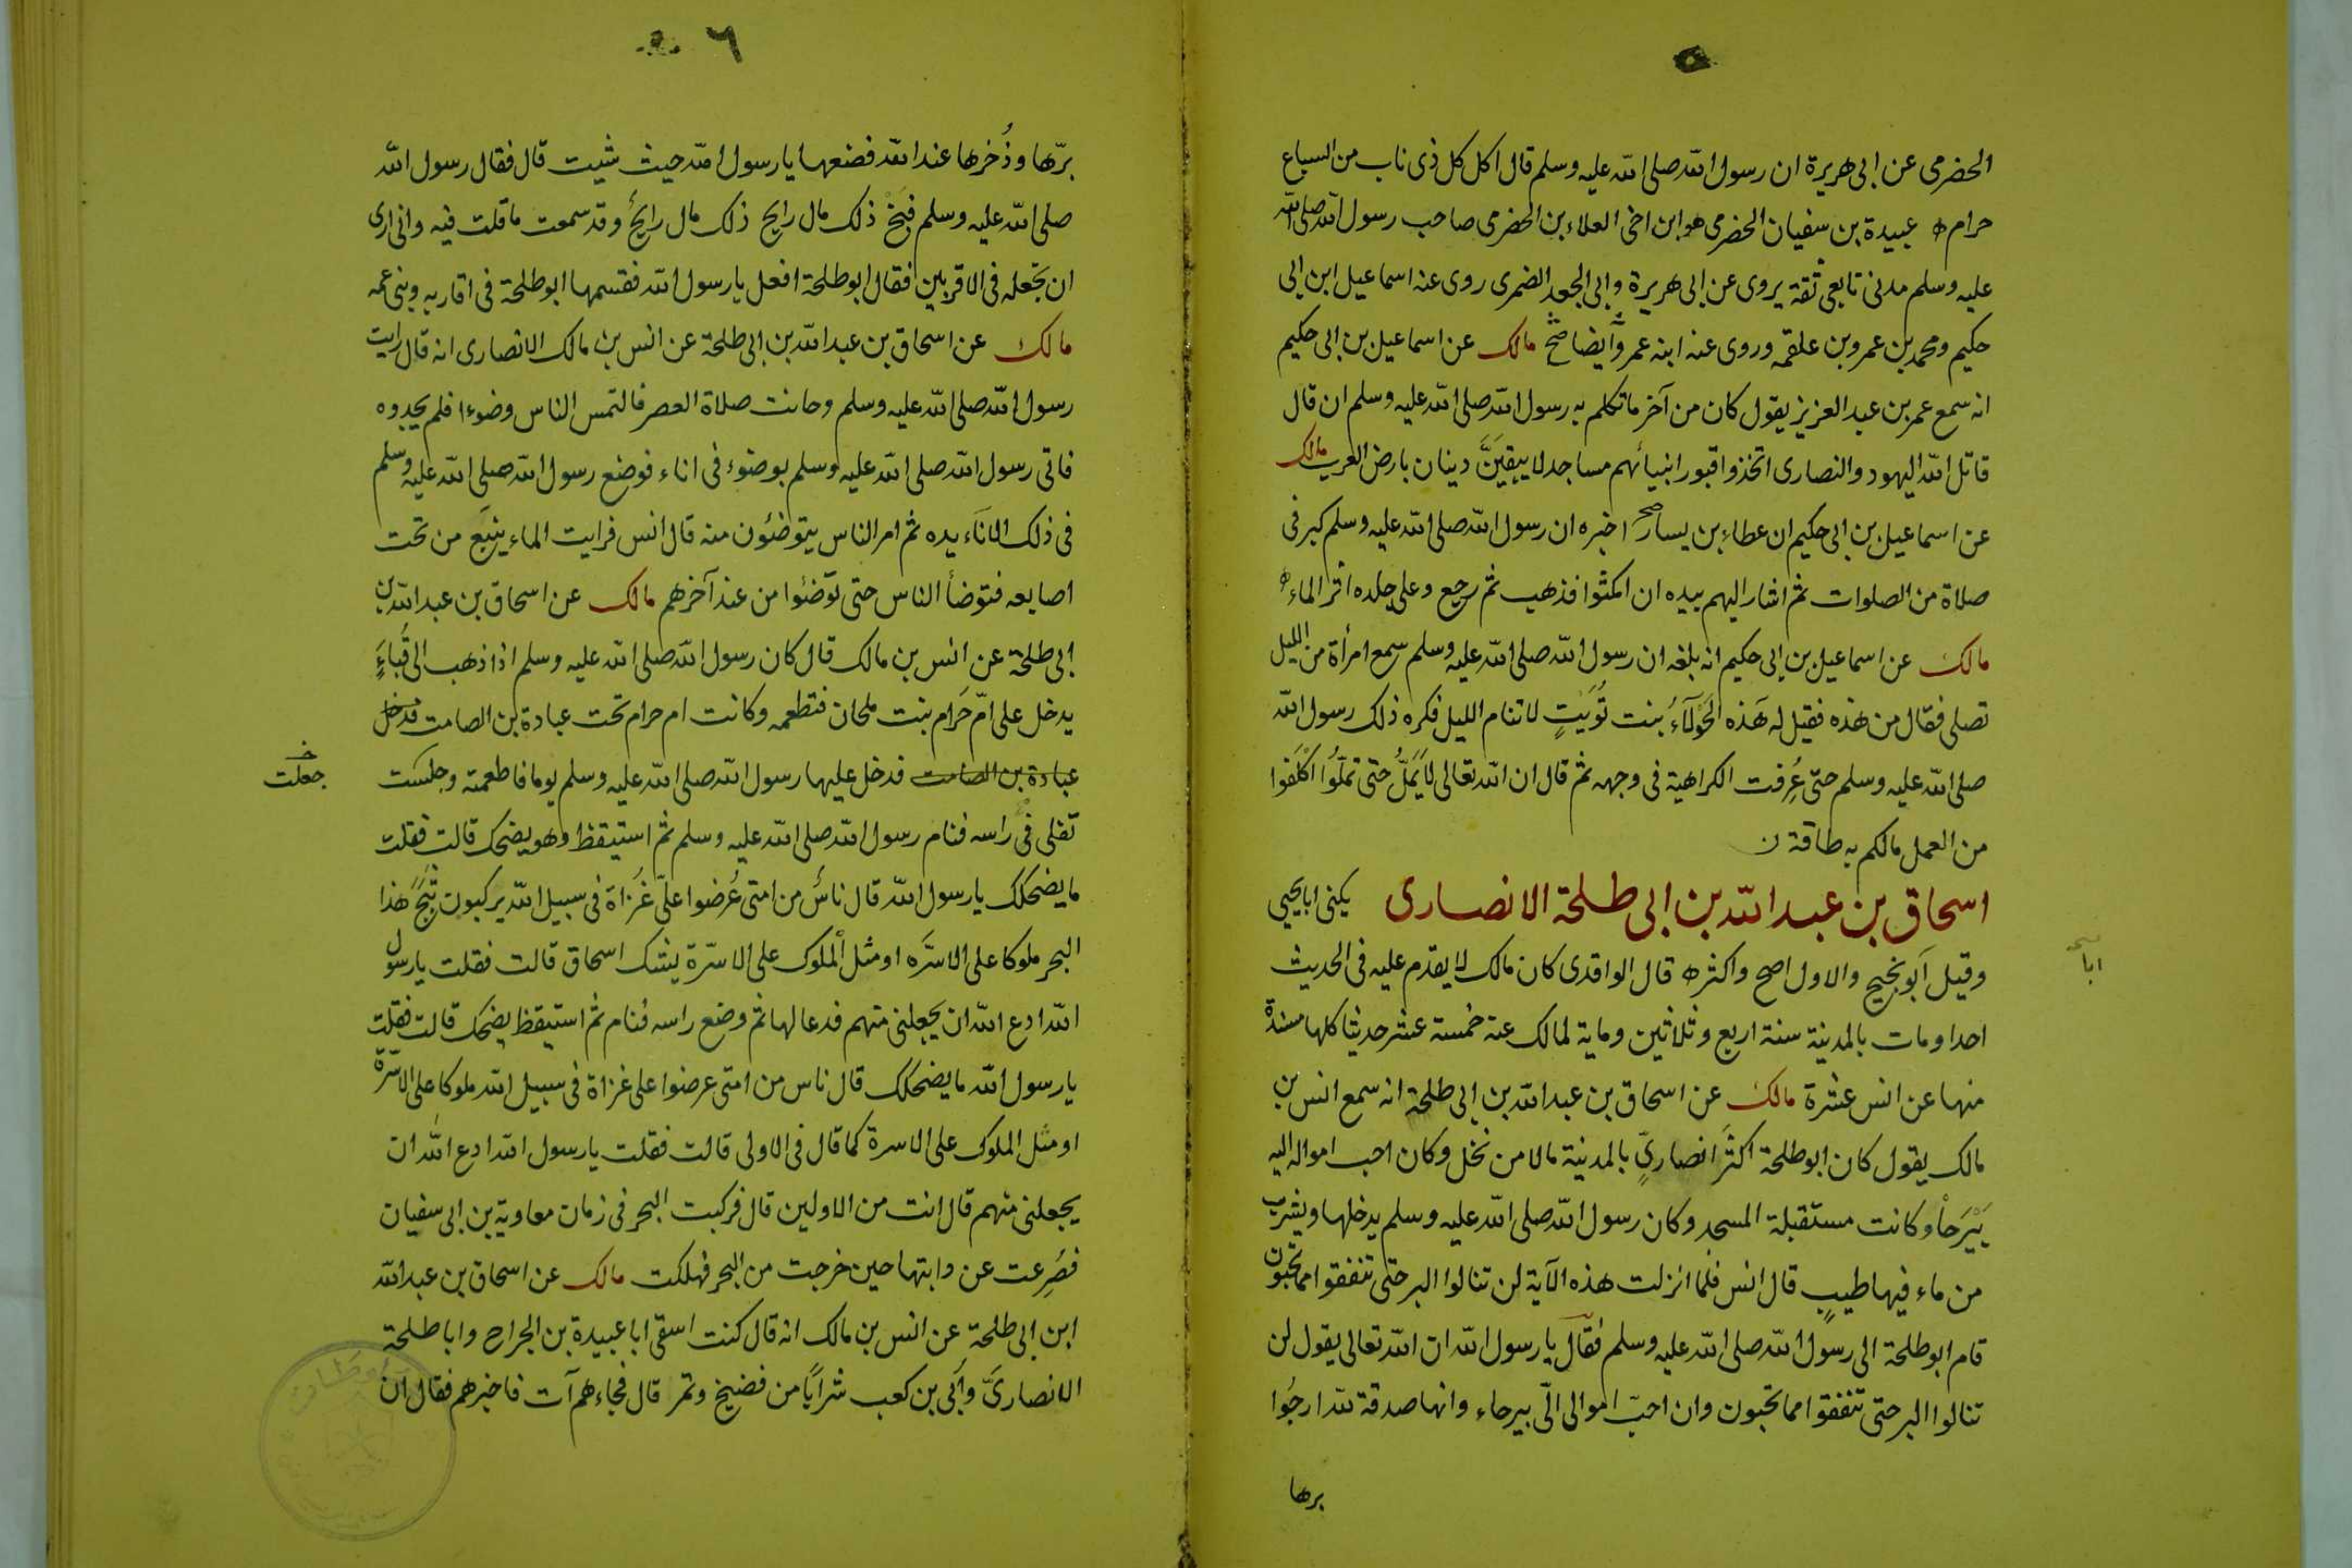 ٥
الحضرمى عن ابى هريرة ان رسول الله صلى الله عليه وسلم قال اكل كل ذى ناب من السباع
حرام ه عبيدة بن سفيان الحضرمى هو ابن اخى العلاء بن الحضرمى صاحب رسول الله صلى الله
عليه وسلم مدنى تابعى ثقة يروى عن ابى هريرة وابى الجعد الضمرى روى عنه اسماعيل ابن ابى
حكيم ومحمد بن عمرو بن علقمه وروى عنه ابنه عمرو ايضا صح مالك عن اسماعيل بن ابى حكيم
انه سمع عمر بن عبد العزيز يقول كان من آخر ما تكلم به رسول الله صلى الله عليه وسلم ان قال
قاتل الله اليهود والنصارى اتخذوا قبور انبيائهم مساجد لا يبقيَنَّ دينان بارض العرب مالك
عن اسماعيل بن ابى حكيم ان عطاء بن يسار صح اخبره ان رسول الله صلى الله عليه وسلم كبر فى
صلاة من الصلوات ثم اشار اليهم بيده ان امكثوا فذهب ثم رجع وعلى جلده اثر الماء ه
مالك عن اسماعيل بن ابى حكيم انه بلغه ان رسول الله صلى الله عليه وسلم سمع امرأة من الليل
تصلى فقال من هذه فقيل له هَذه الحَوْلآءُ بنت تُوَيتٍ لا تنام الليل فكره ذلك رسول الله
صلى الله عليه وسلم حتى عُرِفت الكراهية فى وجهه ثم قال ان الله تعالى لا يَمَلُّ حتى تملّوُا اكْلَفوا
من العمل مالكم به طاقة ن
اسحاق بن عبد الله بن ابى طلحة الانصارى يكنى ابا يحيى
ابا
وقيل أبو نجيح والاول اصح واكثر ه قال الواقدى كان مالك لا يقدم عليه فى الحديث
احدا ومات بالمدينة سنة اربع وثلاثين وماية لمالك عنه خمسة عشر حديثا كلها مسندة
منها عن انس عشرة مالك عن اسحاق بن عبد الله بن ابى طلحة انه سمع انس بن
مالك يقول كان ابو طلحة اكثَرَ انصارىٍّ بالمدينة مالا من نخل وكان احب امواله اليه
بَيْرَحاْ وكانت مستقبلة المسجد وكان رسول الله صلى الله عليه وسلم يدخلها ويشرب
من ماء فيها طيبٍ قال انس فلما انزلت هذه الآية لن تنالوا البر حتى تنفقوا مما تحبون
قام ابو طلحة الى رسول الله صلى الله عليه وسلم فقال يا رسول الله ان الله تعالى يقول لن
تنالوا البر حتى تنفقوا مما تحبون وان احبّ اموالى الىّ بيرحاء وانها صدقة لله ارجُوا
برها
٦
برّها وذُخرها عند الله فضعها يا رسول الله حيث شيت قال فقال رسول الله
صلى الله عليه وسلم فبَخْ ذلك مال رايح ذلك مال رايحُ وقد سمعت ما قلت فيه وانى ارى
ان تجعله فى الاقربين فقال ابو طلحة افعل يا رسول الله فقسمها ابو طلحة فى اقاربه وبنى عمه
مالك عن اسحاق بن عبد الله بن ابى طلحة عن انس بن مالك الانصارى انه قال رايت
رسول الله صلى الله عليه وسلم وحانت صلاة العصر فالتمس الناس وضوءا فلم يجدوه
فاتى رسول الله صلى الله عليه وسلم بوضوء فى اناء فوضع رسول الله صلى الله عليه وسلم
فى ذلك الاناء يده ثم امر الناس يتوضئون منه قال انس فرايت الماء ينبَع من تحت
اصابعه فتوضأ الناس حتى توّضئوا من عند آخرهم مالك عن اسحاق بن عبد الله بن
ابى طلحة عن انس بن مالك قال كان رسول الله صلى الله عليه وسلم اذا ذهب الى قُباءَ
يدخل على امّ حَرام بنت ملحان فتطعمه وكانت ام حرام تحت عبادة بن الصامت فدخل
عبادة بن الصامت فدخل عليها رسول الله صلى الله عليه وسلم يوما فاطعمته وجلست
خ جعلت
تفلى فى راسه فنام رسول الله صلى الله عليه وسلم ثم استيقظ وهو يضحك قالت فقلت
ما يضحكك يا رسول الله قال ناسٌ من امتى عُرضوا علىّ غُزاة فى سبيل الله يركبون ثَبَجَ هذا
البحر ملوكا على الاسرّه او مثلْ الملوك على الاسرّة يشك اسحاق قالت فقلت يا رسول
الله ادع الله ان يجعلنى منهم فدعا لها ثم وضع راسه فنام ثم استيقظ يضحك قالت فقلت
يا رسول الله ما يضحكك قال ناس من امتى عرضوا على غزاة فى سبيل الله ملوكا على الاسرّة
او مثل الملوك على الاسرة كما قال فى الاولى قالت فقلت يا رسول الله ادع الله ان
يجعلنى منهم قال انت من الاولين قال فركبت البحر فى زمان معاوية بن ابى سفيان
فصُرِعت عن دابتها حين خرجت من البحر فهلكت مالك عن اسحاق بن عبد الله
ابن ابى طلحة عن انس بن مالك انه قال كنت اسقى ابا عبيدة بن الجراح وابا طلحة
الانصارىّ وأبى بن كعب شرابًا من فضيخ وتمر قال فجاءهم آت فاخبرهم فقال ان